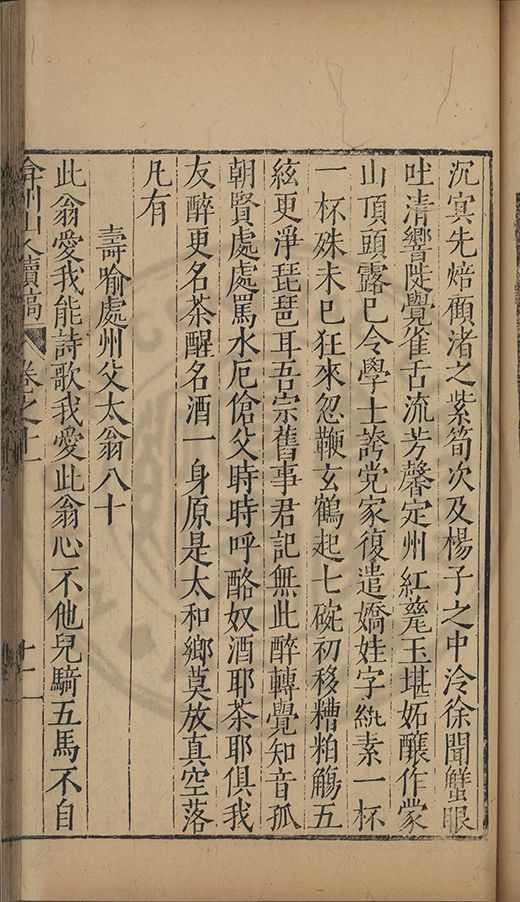 沉寘先焙顧渚之紫筍次及楊子之中泠徐聞蟹眼
吐清響陡覺雀舌流芳馨定州紅甆玉堪妬釀作蒙
山頂頭露已令學士誇党家復遣嬌姓字紈素一杯
一杯殊未已狂來忽鞭玄鶴起七碗初移糟粕觴五
絃更淨琵琶耳吾宗舊事君記無此醉轉覺知音孤
朝賢處處罵水厄傖父時時呼酪奴酒耶茶耶俱我
友醉更名茶醒名酒一身原是太和鄉莫放真空落
凡有
壽喻處州父太翁八十
此翁愛我能詩歌我愛此翁心不他兒騎五馬不自
弇州山人續稿 卷之十